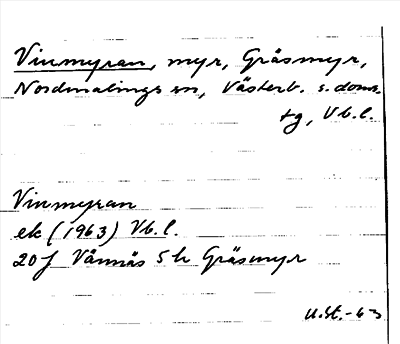 Vinmyran, myr, Gräsmyr,
Nordmalings sn, Västerb. s. doms.
tg, Vb.l.
Vinmyran
ek (1963) Vb.l.
20J Vännäs 5h Gräsmyr
U.St.-63